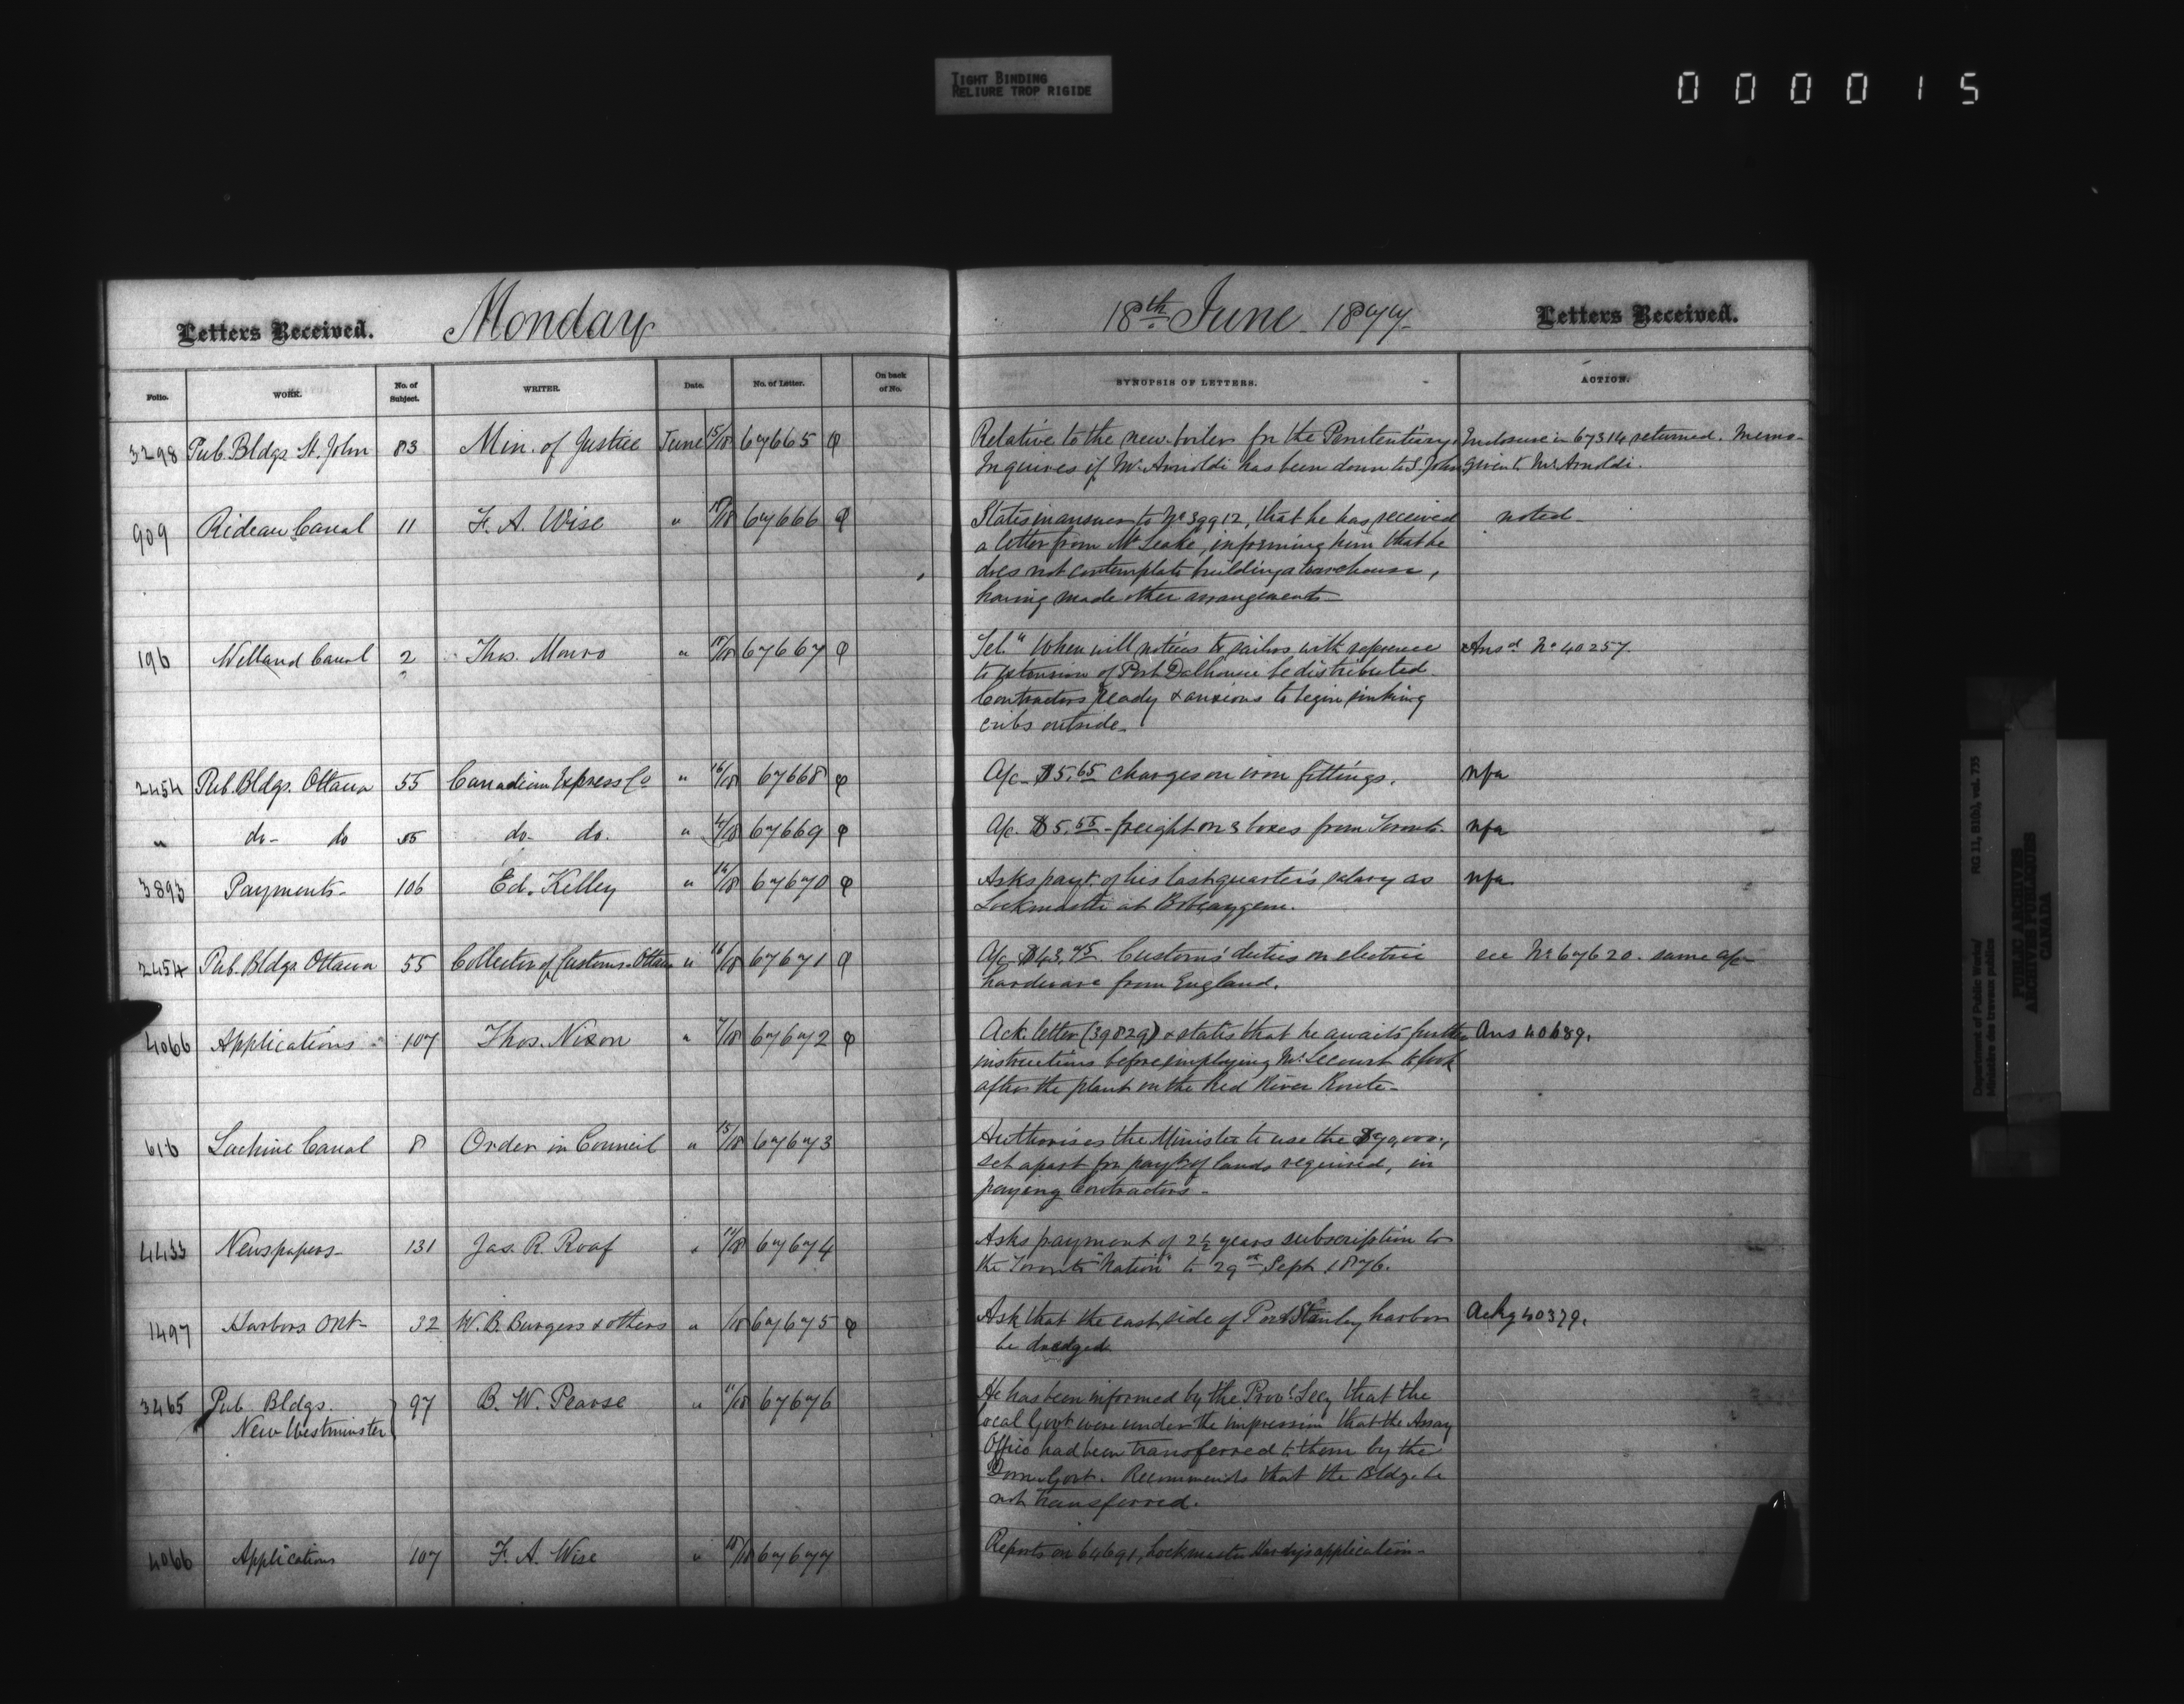 TIGHT BINDING
RELIURE TROP RIGIDE
000015
Letters Received. Monday 18th June 1877 Letters Received.
Folio. WORK. No. of Subject. WRITER. Date. No. of Letter. On back of No. SYNOPSIS OF LETTERS. ACTION.
3298 Pub. Bldgs St. John 83 Min. of Justice June 15/18 67665 Relative to the new boiler for the Penitentiary. Enclosure in 67314 returned. Memo-
Inquires if Mr Arnoldi has been down to St John given to Mr Arnoldi.
909 Rideau Canal 11 F. A. Wise " 18 67666 States in answer to No 39912, that he has received noted-
a letter from Mr Leake, informing him that he
does not contemplate building a warehouse,
having made other arrangements-
196 Welland Canal 2 Thos. Monro " 18 67667 Tel. "When will notices to sailors with reference Ansd No 40257.
to extension of Port Dalhousie be distributed.
Contractors ready & anxious to begin sinking
cribs outside-
2454 Pub. Bldgs. Ottawa 55 Canadian Express Co " 16/18 67668 A/c- $5.65 charges on iron fittings. nfa
" do- do 55 do- do. " 18 67669 A/c. $5.55 - freight on 3 boxes from Toronto. nfa
3893 Payments- 106 Ed. Kelley " 16/18 67670 Asks payt. of his last quarter's salary as nfa
Lockmaster at Bobcaygeon.
2454 Pub. Bldgs Ottawa 55 Collector of Customs-Ottawa " 16/18 67671 A/c- $43.75 Customs' duties on electric see No 67620. same a/c-
hardware from England.
4066 Applications 107 Thos. Nixon " 7/18 67672 Ack. letter (39829) & states that he awaits further Ans 40689.
instructions before employing Mr. Lecourt to look
after the plant on the Red River Route-
616 Lachine Canal 8 Order in Council " 15/18 67673 Authorises the Minister to use the $70,000,
set apart for payt of lands required, in
paying Contractors-
4433 Newspapers- 131 Jas. R. Roaf " 18 67674 Asks payment of 2½ years subscription to
the Toronto "Nation" to 29th Sept 1876.
1497 Harbors Ont- 32 W. B. Burgess & others " /18 67675 Ask that the east side of Port Stanley harbor Ackg 40379.
be dredged
3465 Pub. Bldgs. 97 B. W. Pearse " 11/18 67676 He has been informed by the Provl Secy that the
New Westminster local Govt. were under the impression that the Assay
Office had been transferred to them by the
Dom. Govt. Recommends that the Bldg. be
not transferred.
4066 Applications 107 F. A. Wise " 18/18 67677 Reports on 64691, Lockmaster Hardy's application-
RG 11, B1(b), vol. 735
Department of Public Works/
Ministère des travaux publics
PUBLIC ARCHIVES
ARCHIVES PUBLIQUES
CANADA